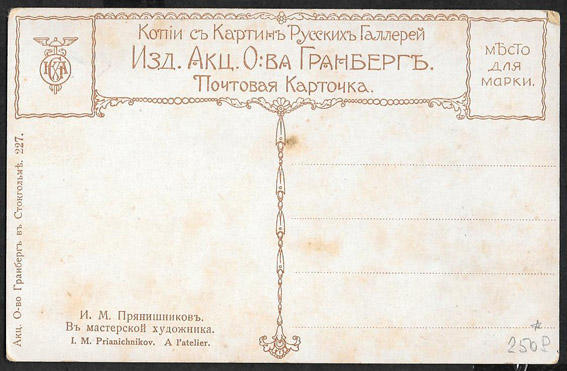 Копіи съ Картинъ Русскихъ Галлерей
Изд. Акц. О-ва Гранбергъ.
Почтовая Карточка.
МѢСТО
ДЛЯ
МАРКИ.
Акц. О-во Гранбергъ въ Стокгольмѣ. 227.
И. М. Прянишниковъ.
Въ мастерской художника.
I. M. Prianichnikov. A l'atelier.
250